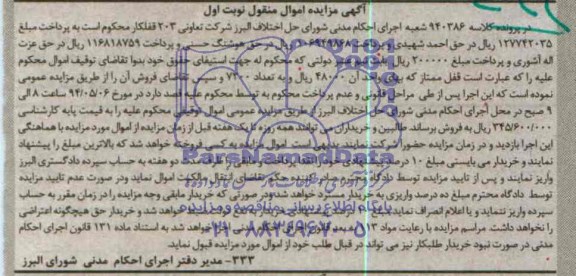 آگهی مزایده اموال منقول نوبت اول
در پرونده کلاسه ۹۴۰۳۸۶ شعبه اجرای احکام مدنی شورای حل اختلاف البرز شرکت تعاونی ۲۰۳ قفلکار محکوم است به پرداخت مبلغ
۱۲۷۷۴۲۰۳۵ ریال در حق احمد شهیدی و پرداخت ریال در حق هوشنگ و پرداخت ۱۱۶۸۱۸۷۵۹ ریال در حق عزت
اله آشوری و پرداخت مبلغ ۲۰۰۰۰۰ ریال دولتی که محکوم له جهت استیفای حقوق خود بدوا تقاضای توقیف اموال محکوم
علیه را که عبارت است قفل ممتاز که بهای واحد آن ۴۸۰۰۰ ریال و به تعداد و سپس تقاضای فروش آن را از طریق مزایده عمومی
نموده است که این اجرا پس از طی مراحل قانونی و عدم پرداخت محکوم به توسط محکوم علیه قصد دارد در مورخ ۹۴/۰۵/۰۶ ساعت ۸ الی
۹ صبح در محل اجرای احکام مدنی شورای حل اختلاف البرز از طریق مزایده عمومی اموال توقیفی محکوم علیه را به قیمت پایه کارشناسی
۳۴۵/۶۰۰/۰۰۰ ریال به فروش برساند. طالبین و خریداران می توانند همه روزه تا یک هفته قبل از زمان مزایده از اموال مورد مزایده با هماهنگی
این اجرا بازدید و در زمان مزایده حضور نمایند بدیهی است اموال مزایده به کسی فروخته خواهد شد که بالاترین مبلغ را پیشنهاد
نمایند و خریدار می بایستی مبلغ ۱۰ درصد دو هفته به حساب سپرده دادگستری البرز
واریز نمایند و پس از تایید مزایده توسط دادگاه محترم صادر کننده حکم تقاضای انتقال مالکیت اموال نماید ودر صورت عدم تایید مزایده
توسط دادگاه محترم مبلغ ده درصد واریزی به خریدار مسترد خواهد شد ودر صورتی که خریدار مابقی وجه مزایده را در زمان مقرر به حساب
سپرده واریز ننماید و یا اعلام انصراف نماید خواهد شد و خریدار حق هیچگونه اعتراضی
را نخواهد داشت. مراسم مزایده با رعایت مواد خواهد شد به استناد ماده ۱۳۱ قانون اجرای احکام
مدنی در صورت نبود خریدار طلبکار نیز می تواند در قبال طلب خود از اموال مورد مزایده قبول نماید.
۳۳۳- مدیر دفتر اجرای احکام مدنی شورای البرز
ParsNamadData
پایگاه اطلاع رسانی مناقصه و مزایده
۰۲۱-۸۸۳۴۹۶۷۰-۵